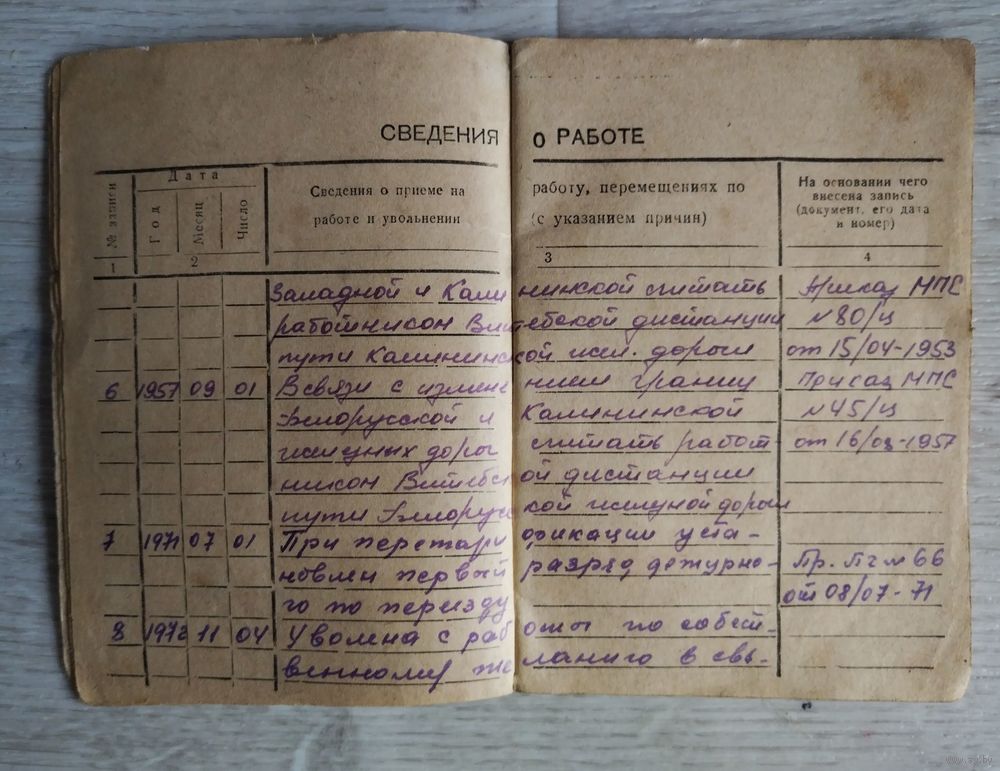 СВЕДЕНИЯ О РАБОТЕ
№ записи
Дата
Год
Месяц
Число
Сведения о приеме на работу, перемещениях по
работе и увольнении (с указанием причин)
На основании чего
внесена запись
(документ, его дата
и номер)
1 2 3 4
Западной и Калининской считать Приказ МПС
работником Витебской дистанции №80/ц
пути Калининской жел. дороги от 15/04-1953
6 1957 09 01 В связи с изменением границ Приказ МПС
Белорусской и Калининской №45/ц
железных дорог считать работ- от 16/08-1957
ником Витебской дистанции
пути Белорусской железной дороги
7 1971 07 01 При перетарификации уста-
новлен первый разряд дежурно- Пр. ПЧ №66
го по переезду от 08/07-71
8 1972 11 04 Уволена с работы по собст-
венному желанию в свя-